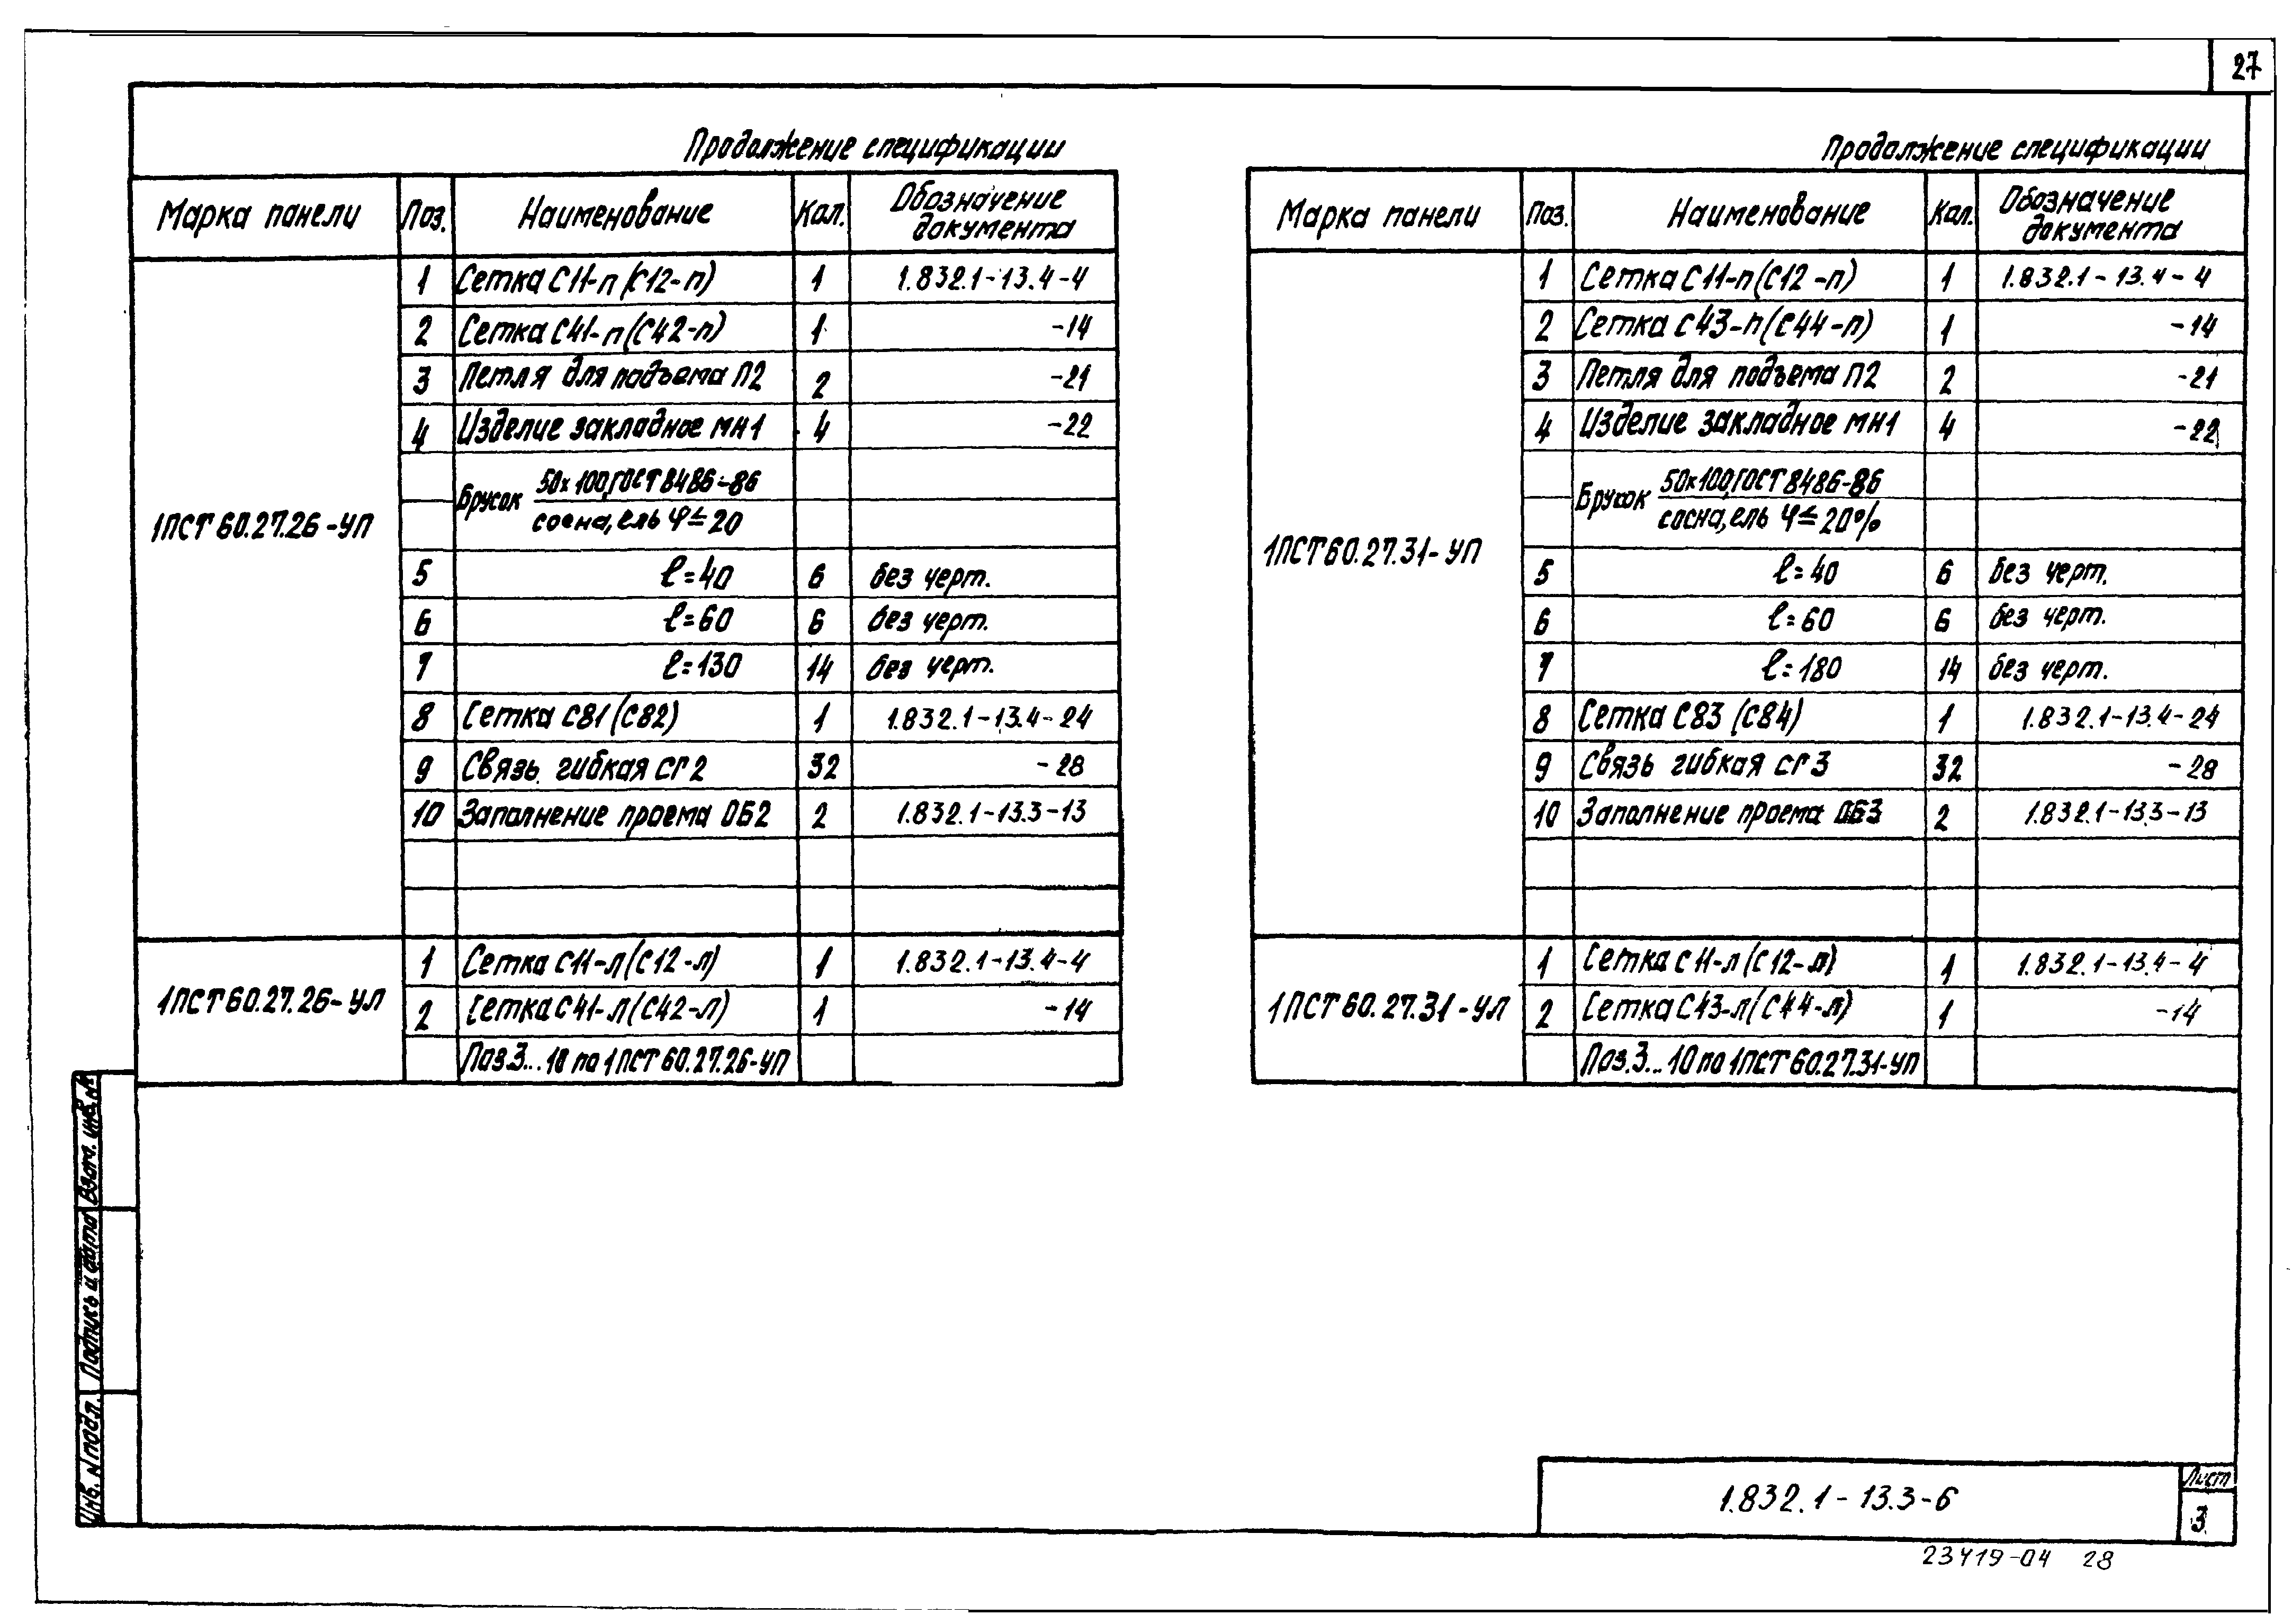 27
Продолжение спецификации
Марка панели Поз. Наименование Кол. Обозначение документа
1ПСТ 60.27.26-УП
1 Сетка С11-п (С12-п) 1 1.832.1-13.4-4
2 Сетка С41-п (С42-п) 1 -14
3 Петля для подъема П2 2 -21
4 Изделие закладное МН1 4 -22
Брусок 50х100, ГОСТ 8486-86
сосна, ель φ≤20
5 ℓ=40 6 без черт.
6 ℓ=60 6 без черт.
7 ℓ=130 14 без черт.
8 Сетка С81 (С82) 1 1.832.1-13.4-24
9 Связь гибкая СГ2 32 -28
10 Заполнение проема ОБ2 2 1.832.1-13.3-13
1ПСТ 60.27.26-УЛ
1 Сетка С11-л (С12-л) 1 1.832.1-13.4-4
2 Сетка С41-л (С42-л) 1 -14
Поз.3...10 по 1ПСТ 60.27.26-УП
Продолжение спецификации
Марка панели Поз. Наименование Кол. Обозначение документа
1ПСТ 60.27.31-УП
1 Сетка С11-п (С12-п) 1 1.832.1-13.4-4
2 Сетка С43-п (С44-п) 1 -14
3 Петля для подъема П2 2 -21
4 Изделие закладное МН1 4 -22
Брусок 50х100, ГОСТ 8486-86
сосна, ель φ≤20%
5 ℓ=40 6 без черт.
6 ℓ=60 6 без черт.
7 ℓ=180 14 без черт.
8 Сетка С83 (С84) 1 1.832.1-13.4-24
9 Связь гибкая СГ3 32 -28
10 Заполнение проема ОБ3 2 1.832.1-13.3-13
1ПСТ 60.27.31-УЛ
1 Сетка С11-л (С12-л) 1 1.832.1-13.4-4
2 Сетка С43-л (С44-л) 1 -14
Поз.3...10 по 1ПСТ 60.27.31-УП
Взам. инв. №
Подпись и дата
Инв. № подл.
1.832.1-13.3-6
Лист
3
23419-04 28